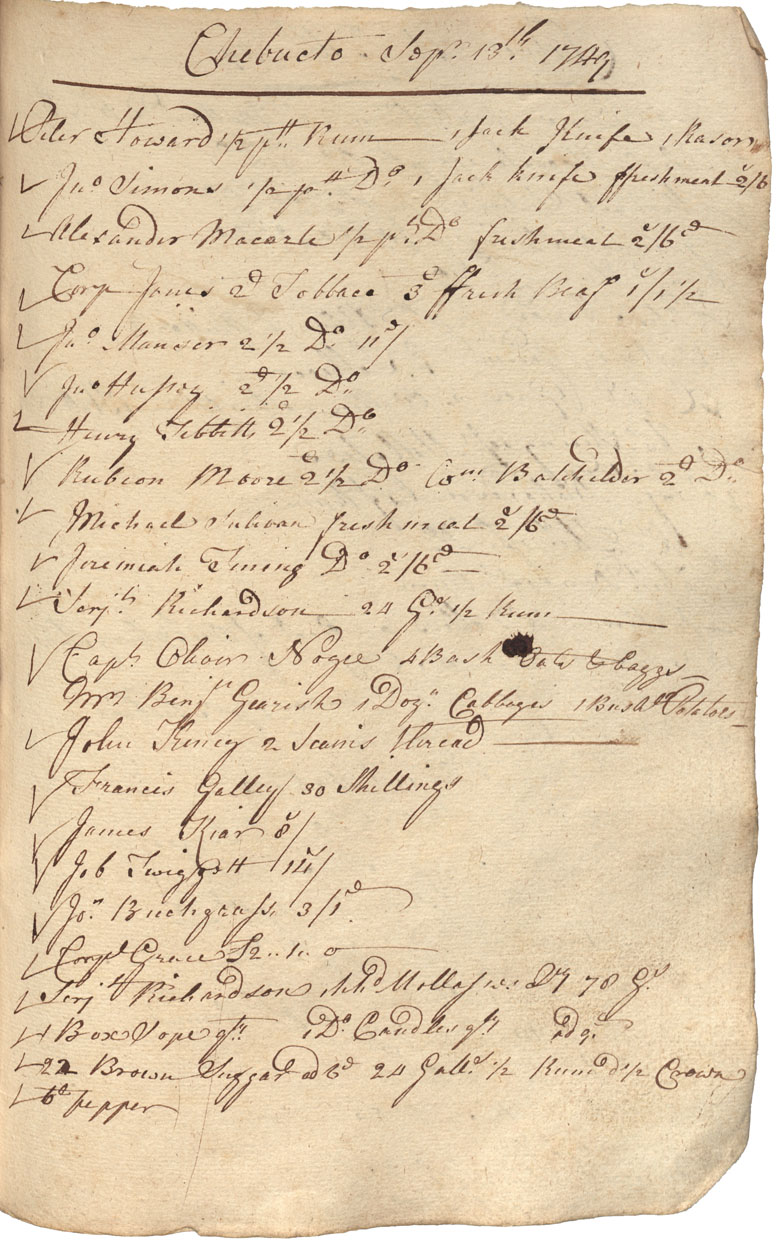 Chebucto Sepr. 13th. 1749
Peter Howard 1/2 pt Rum 1 Jack Knife 1 Rasor
Jno Simons 1/2 pt Do 1 Jack knife ffreshmeat 2/6
Alexander Macarte 1/2 pt Do freshmeat 2/6d
Corp Jones 2d Tobbaco 3d ffresh Beaf 1/1 1/2
Jno Manser 2 1/2 Do 11/
Jno Hussey 2d 1/2 Do
Henry Tibbitts 2 1/2 Do
Rubeon Moore 2 1/2 Do Batchelder 2d Do
Michael Sulivan freshmeat 2/6d
Jeremiah Tining Do 2/6d
Serjt. Richardson 24 Gs 1/2 Rum
Capt. Olivir Noyce 4 Bash Oats & baggs
Mr Benjn Gearish 1 Dozn Cabbages 1 Bushl Potatoes
John Keney 2 Scains thread
Francis Galley 30 Shillings
James Kiar 8/
Job Twiggott 14/
Jon Buchgrass 3/1d
Corpl Grace
Serjt Richardson 1 hhd Mollasses 78 Gs
1 Box Sope qt 1 Do Candles qt
22 Brown Suggar 6d 24 Galls 1/2 Rum 1/2 Crown
6d pepper